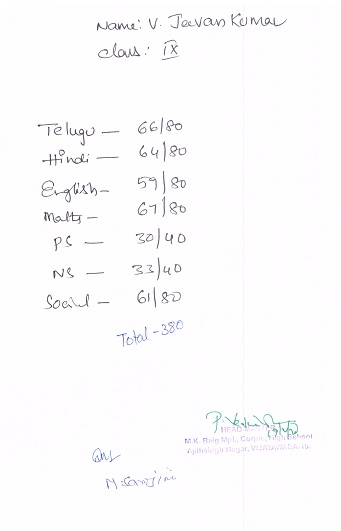 Name: V. Jeevan Kumar
Class: IX
Telugu — 66/80
Hindi — 64/80
English — 59/80
Maths — 67/80
PS — 30/40
NS — 33/40
Social — 61/80
Total - 380
HEAD
M.K. Baig Mpl. Corpn. High School
Ajithsingh Nagar, VIJAYAWADA-15.